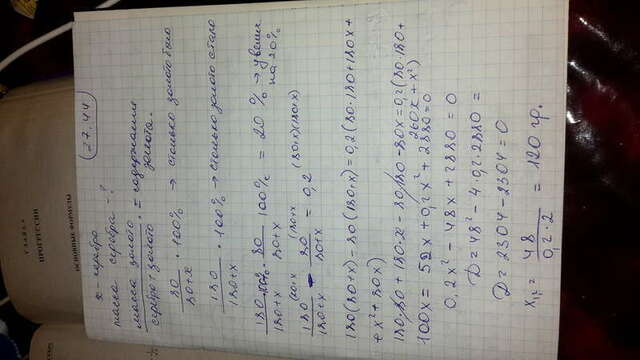 27.44
x - серебро
масса серебра - ?
масса золота / серебро + золото = содержание золота.
80/(80+x) · 100% → сколько золота было
180/(180+x) · 100% → сколько золота стало
180/(180+x) 100% - 80/(80+x) 100% = 20% → увелич на 20%
180/(180+x) - 80/(80+x) = 0,2
180(80+x) - 80(180+x) = 0,2(80·180+180x+
+x²+80x)
180·80+180·x-80·180-80x=0,2(80·180+
260x+x²)
100x = 52x + 0,2x² + 2880 = 0
0,2x² - 48x + 2880 = 0
D = 48² - 4·0,2·2880 =
D = 2304 - 2304 = 0
x₁,₂ = 48/(0,2·2) = 120 гр.
ГЛАВА
ПРОГРЕССИИ
ОСНОВНЫЕ ФОРМУЛЫ